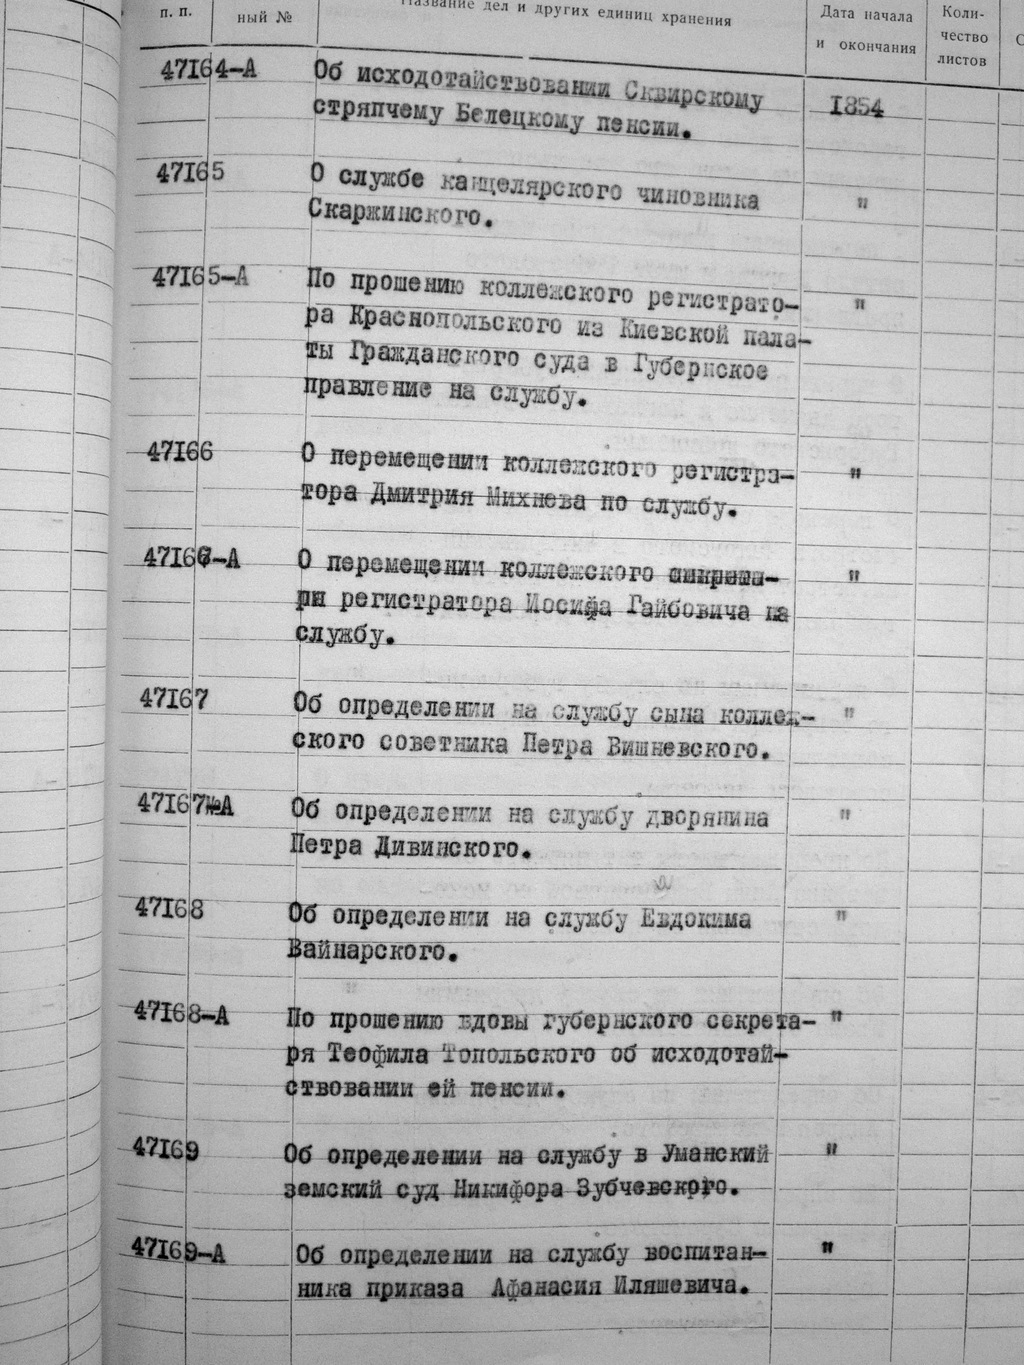 п. п.
ный №
Название дел и других единиц хранения
Дата начала
и окончания
Коли-
чество
листов
47I64-А
Об исходотайствовании Сквирскому
I854
стряпчему Белецкому пенсии.
47I65
О службе канцелярского чиновника
"
Скаржинского.
47I65-А
По прошению коллежского регистрато-
"
ра Краснопольского из Киевской пала-
ты Гражданского суда в Губернское
правление на службу.
47I66
О перемещении коллежского регистра-
"
тора Дмитрия Михнева по службу.
47I66-А
О перемещении коллежского
"
регистратора Иосифа Гайбовича на
службу.
47I67
Об определении на службу сына коллеж-
"
ского советника Петра Вишневского.
47I67№А
Об определении на службу дворянина
"
Петра Дивинского.
47I68
Об определении на службу Евдокима
"
Вайнарского.
47I68-А
По прошению вдовы губернского секрета-
"
ря Теофила Топольского об исходотай-
ствовании ей пенсии.
47I69
Об определении на службу в Уманский
"
земский суд Никифора Зубчевского.
47I69-А
Об определении на службу воспитан-
"
ника приказа Афанасия Иляшевича.